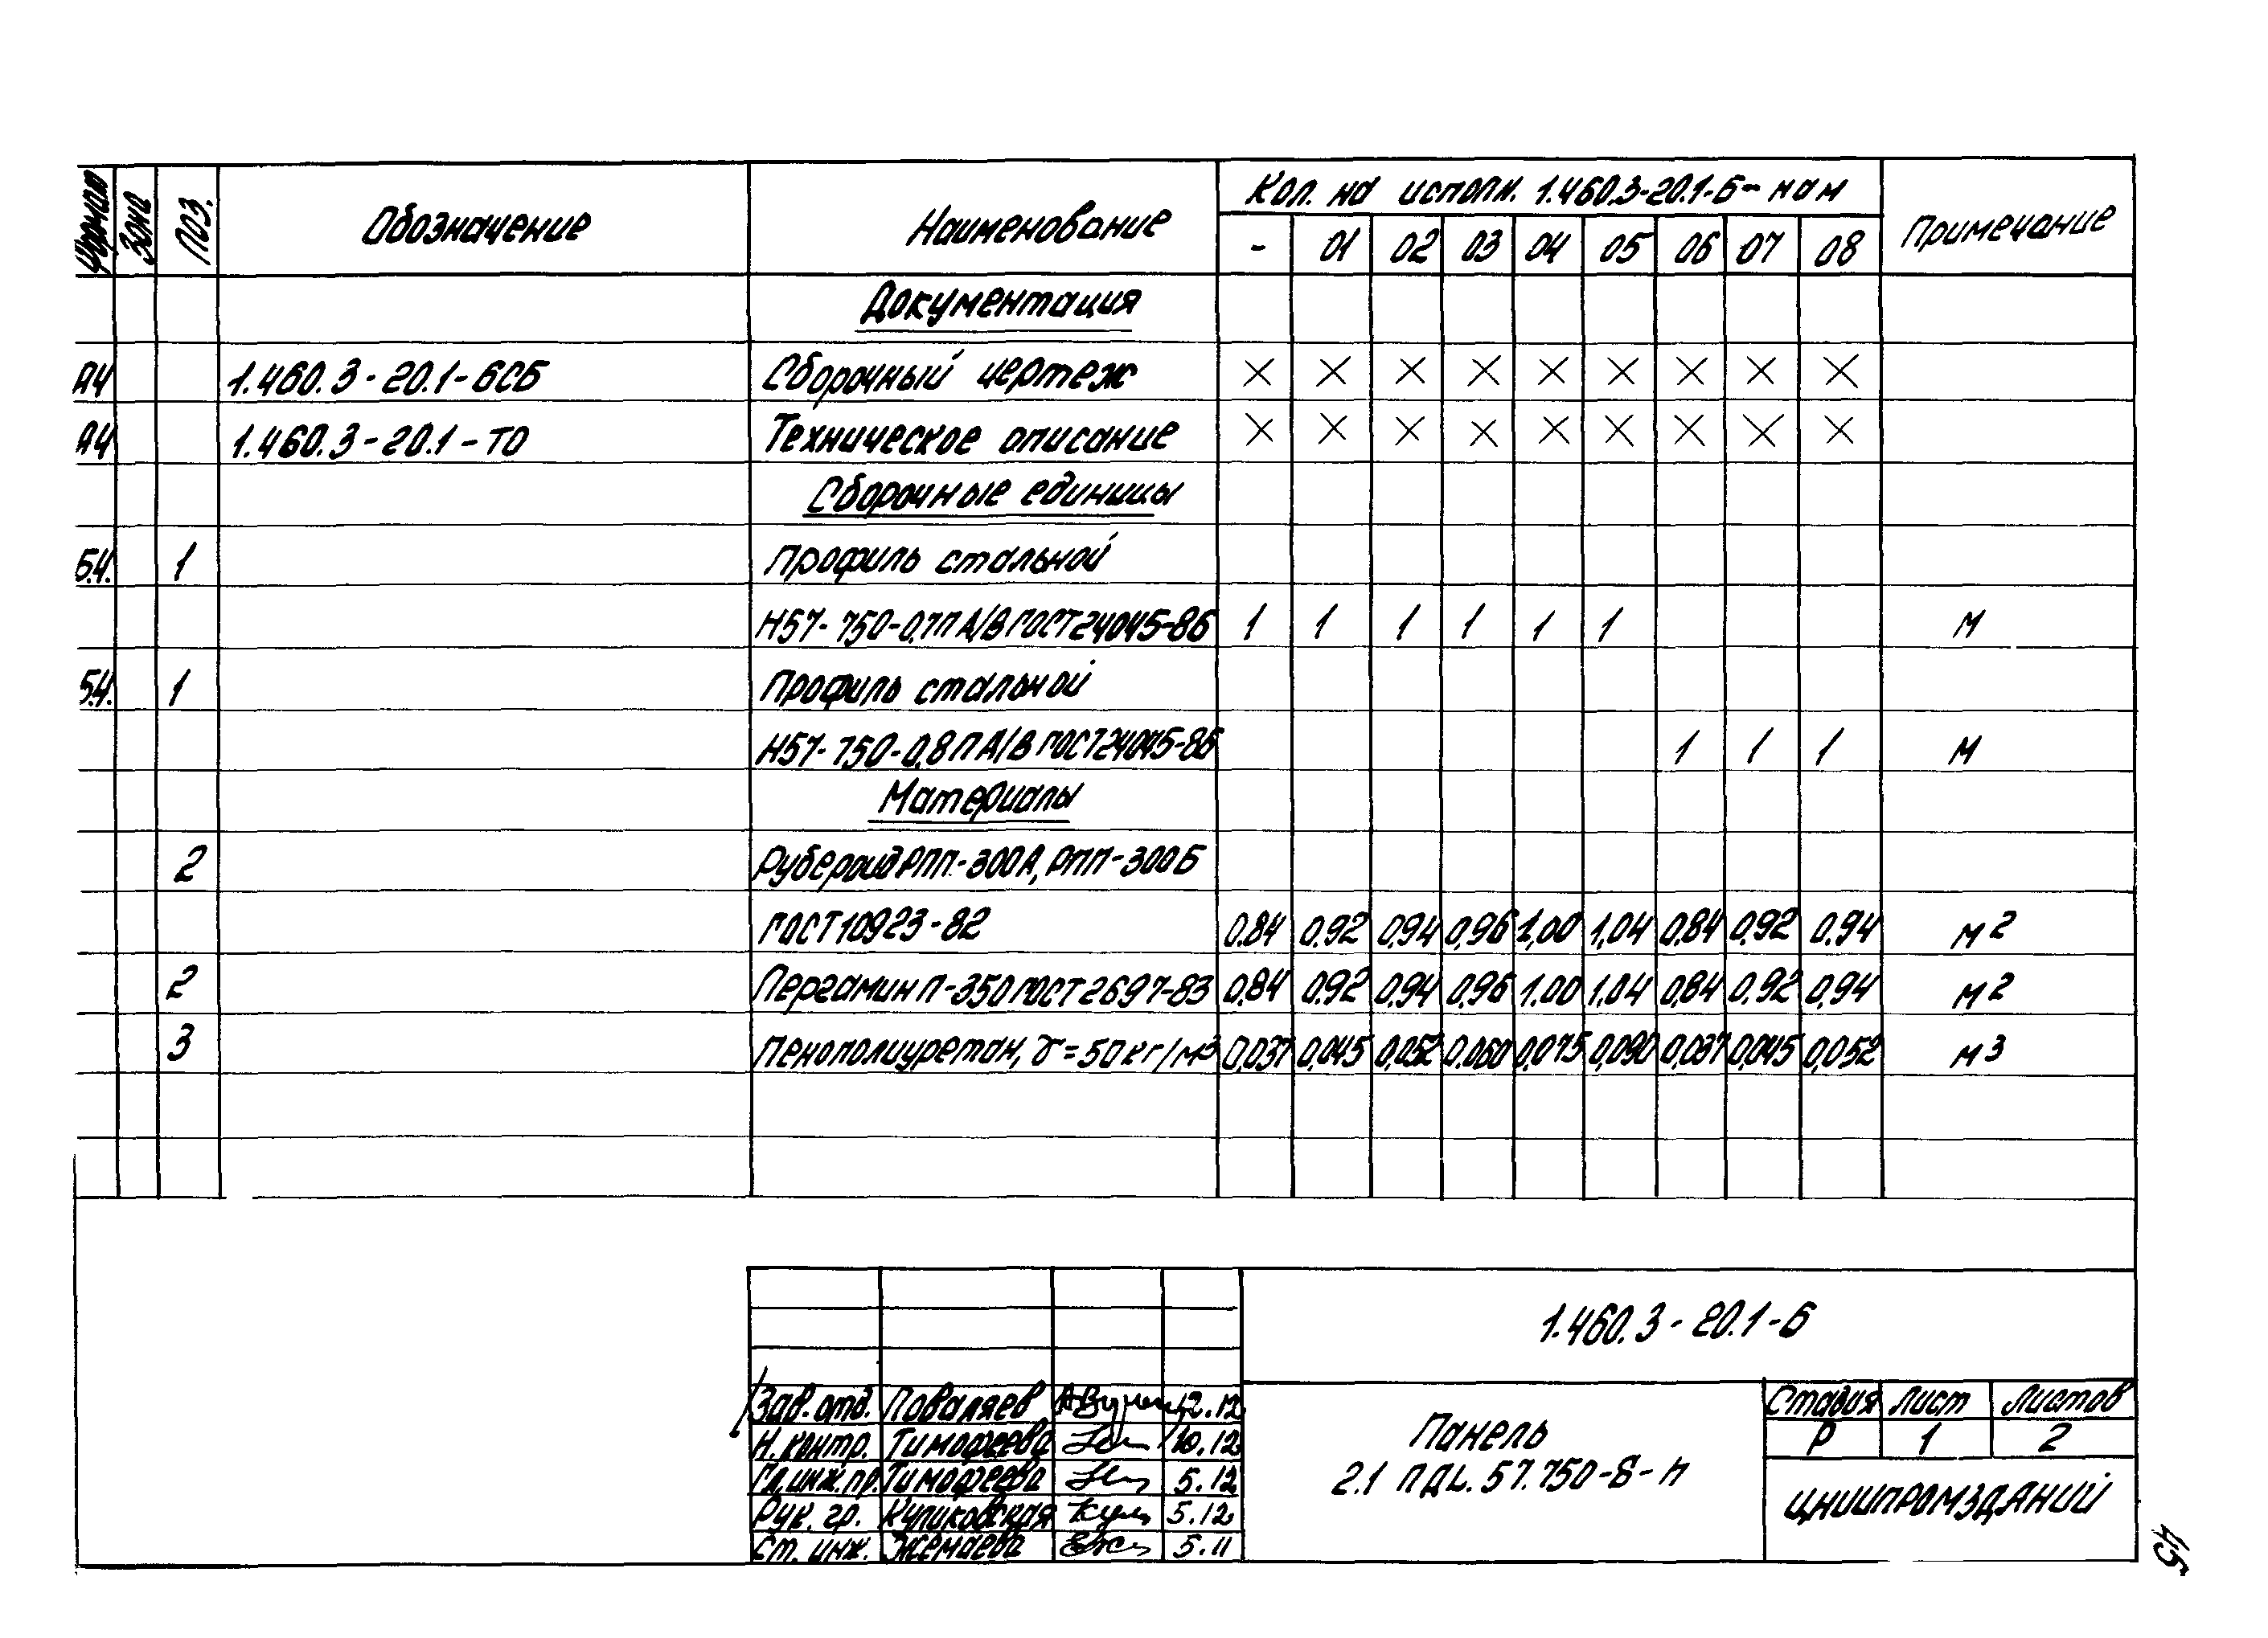 Формат Зона Поз. Обозначение Наименование Кол. на исполн. 1.460.3-20.1-6- нам Примечание
- 01 02 03 04 05 06 07 08
Документация
А4 1.460.3-20.1-6СБ Сборочный чертеж × × × × × × × × ×
А4 1.460.3-20.1-ТО Техническое описание × × × × × × × × ×
Сборочные единицы
Б.4. 1 Профиль стальной
Н57-750-0,7П А/В ГОСТ 24045-86 1 1 1 1 1 1 М
Б.4. 1 Профиль стальной
Н57-750-0,8П А/В ГОСТ 24045-86 1 1 1 М
Материалы
2 Рубероид РПП-300А, РПП-300Б
ГОСТ 10923-82 0.84 0,92 0,94 0,96 1,00 1,04 0,84 0,92 0,94 М²
2 Пергамин П-350 ГОСТ 2697-83 0,84 0,92 0,94 0,96 1,00 1,04 0,84 0,92 0,94 М²
3 Пенополиуретан, γ=50кг/м³ 0,037 0,045 0,052 0,060 0,075 0,090 0,037 0,045 0,052 М³
1.460.3-20.1-6
Зав. отд. Поваляев 12.12
Н. контр. Тимофеева 10.12
Гл.инж.пр. Тимофеева 5.12
Рук. гр. Куликовская 5.12
Ст. инж. Жемаева 5.11
Панель
2.1 ПДL.57.750-S-Н
Стадия Лист Листов
Р 1 2
ЦНИИПРОМЗДАНИЙ
45